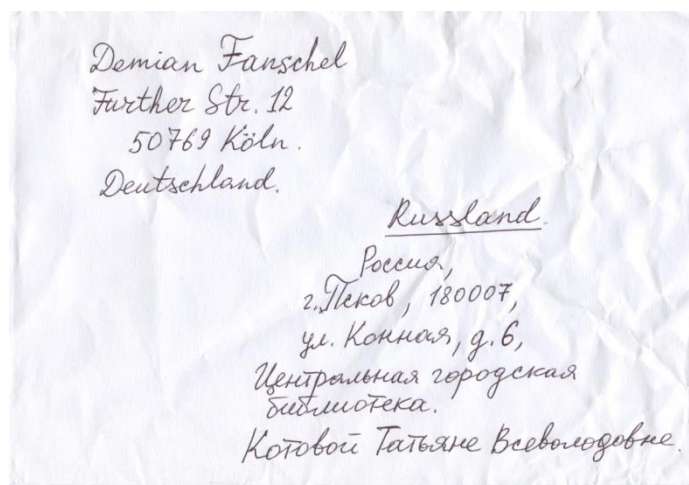 Demian Fanschel
Further Str. 12
50769 Köln.
Deutschland.
Russland.
Россия,
г. Псков, 180007,
ул. Конная, д. 6,
Центральная городская
библиотека.
Котовой Татьяне Всеволодовне.